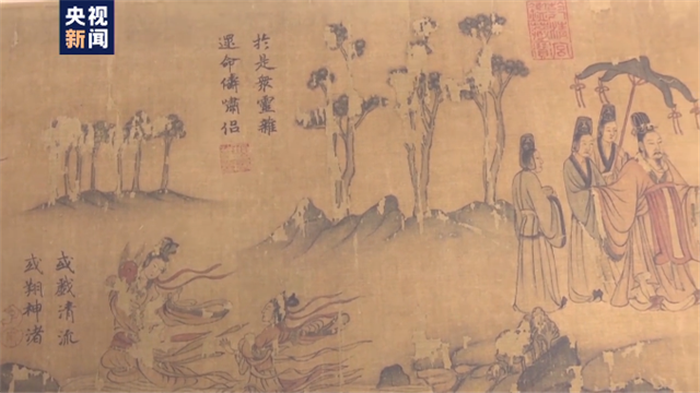 央视
新闻
於是衆靈雜
遝命儔嘯侣
或戲清流
或翔神渚